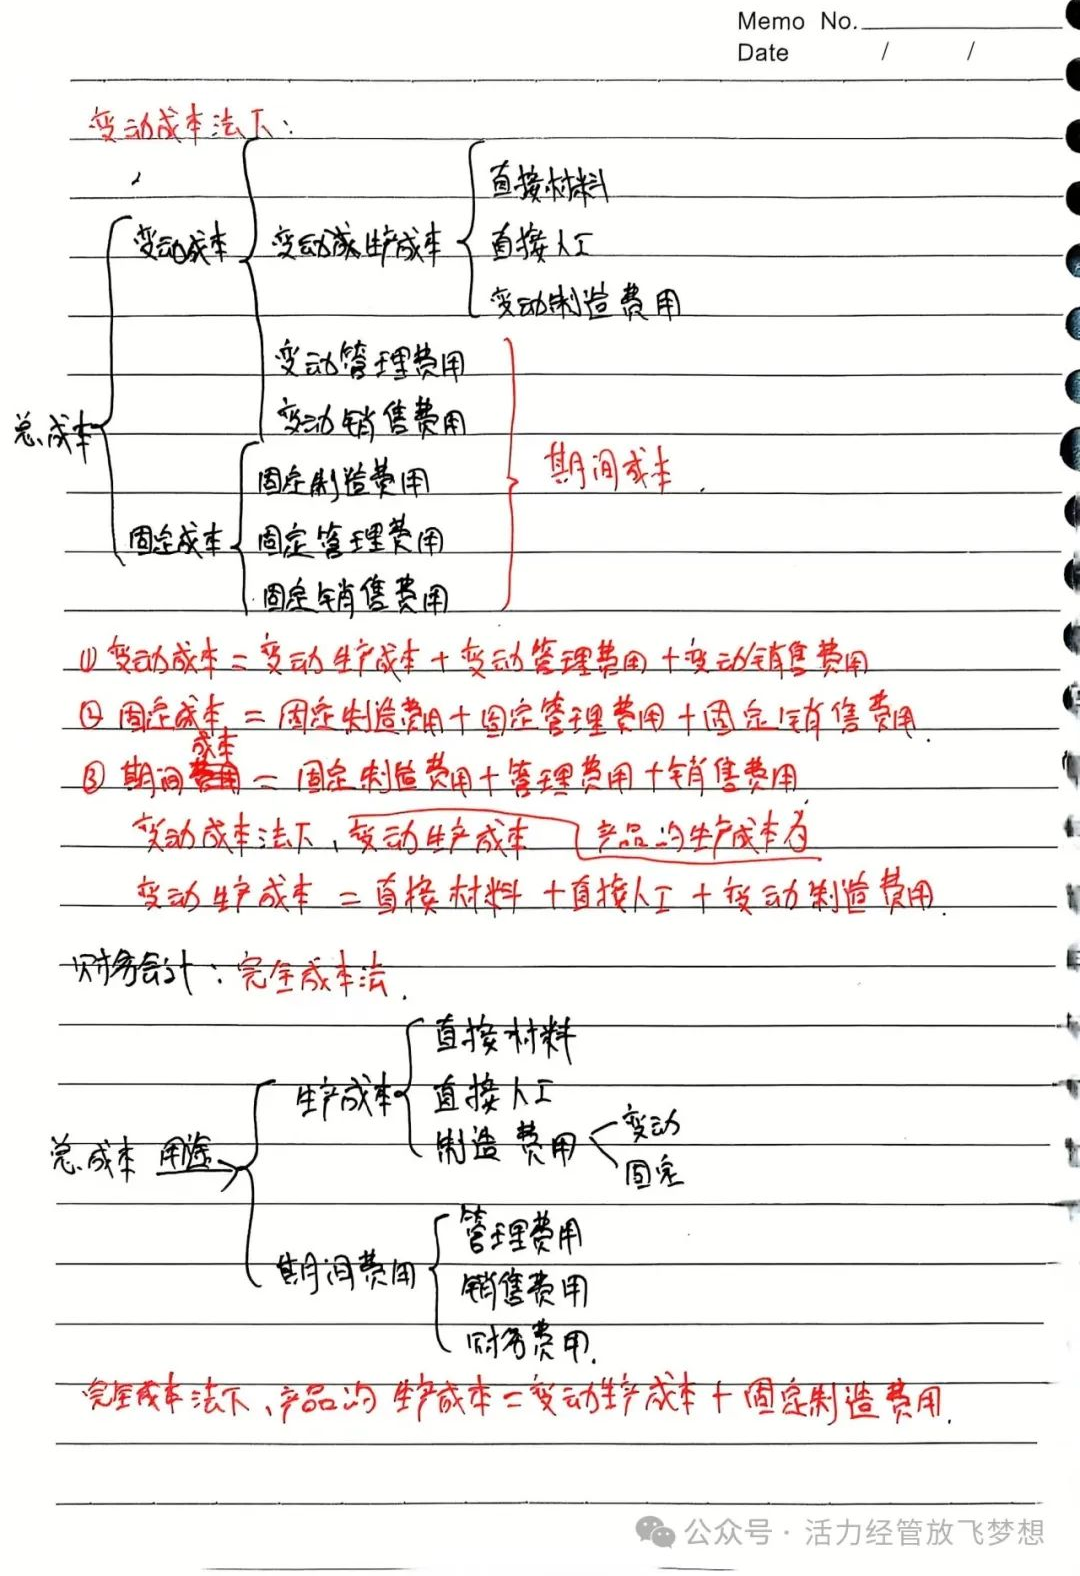 Memo No.
Date / /
变动成本法下:
直接材料
变动成本 变动成生产成本 直接人工
变动制造费用
变动管理费用
变动销售费用
总成本 期间成本
固定制造费用
固定成本 固定管理费用
固定销售费用
①变动成本=变动生产成本+变动管理费用+变动销售费用
②固定成本=固定制造费用+固定管理费用+固定销售费用.
成本
③期间费用=固定制造费用+管理费用+销售费用
变动成本法下,变动生产成本 产品的生产成本为
变动生产成本=直接材料+直接人工+变动制造费用.
财务会计:完全成本法.
直接材料
生产成本 直接人工
制造费用 变动
固定
总成本 用途
管理费用
期间费用 销售费用
财务费用.
完全成本法下,产品的生产成本=变动生产成本+固定制造费用.
公众号·活力经管放飞梦想